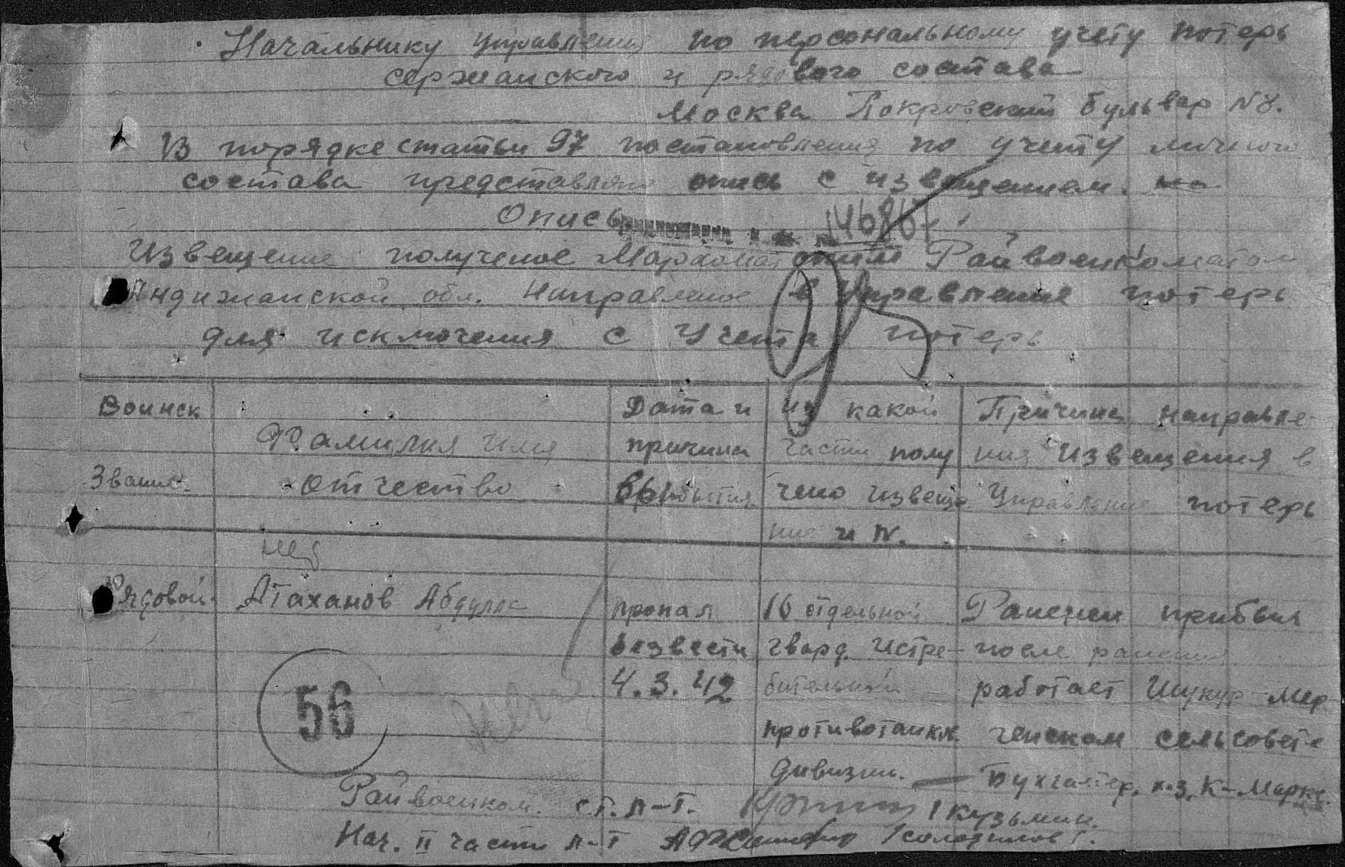 Начальнику Управления по персональному учету потерь
сержанского и рядового состава
Москва Покровский бульвар N8.
В порядке статьи 97 постановления по учету личного
состава представляю опись с извещением.
Опись 146867
Извещение полученое Мархаматским Райвоенкоматом
Андижанской обл. Направленое в Управление потерь
для исключения с Учета потерь
Воинск Звание
Фамилия Имя Отчество
Дата и причина выбытия
из какой части получено извещение и N.
Причина направления извещения в Управление потерь
Рядовой
Атаханов Абдулла
пропал безвести 4.3.42
16 отдельной гвард. Истребительной противотанков дивизии.
Ранен прибыл после ранения работает Шукур-Мергенском сельсовете Бухгалтер. к-з. К-Маркс.
56
Райвоенком. ст. л-т. /Кузьмин.
Нач. II части л-т